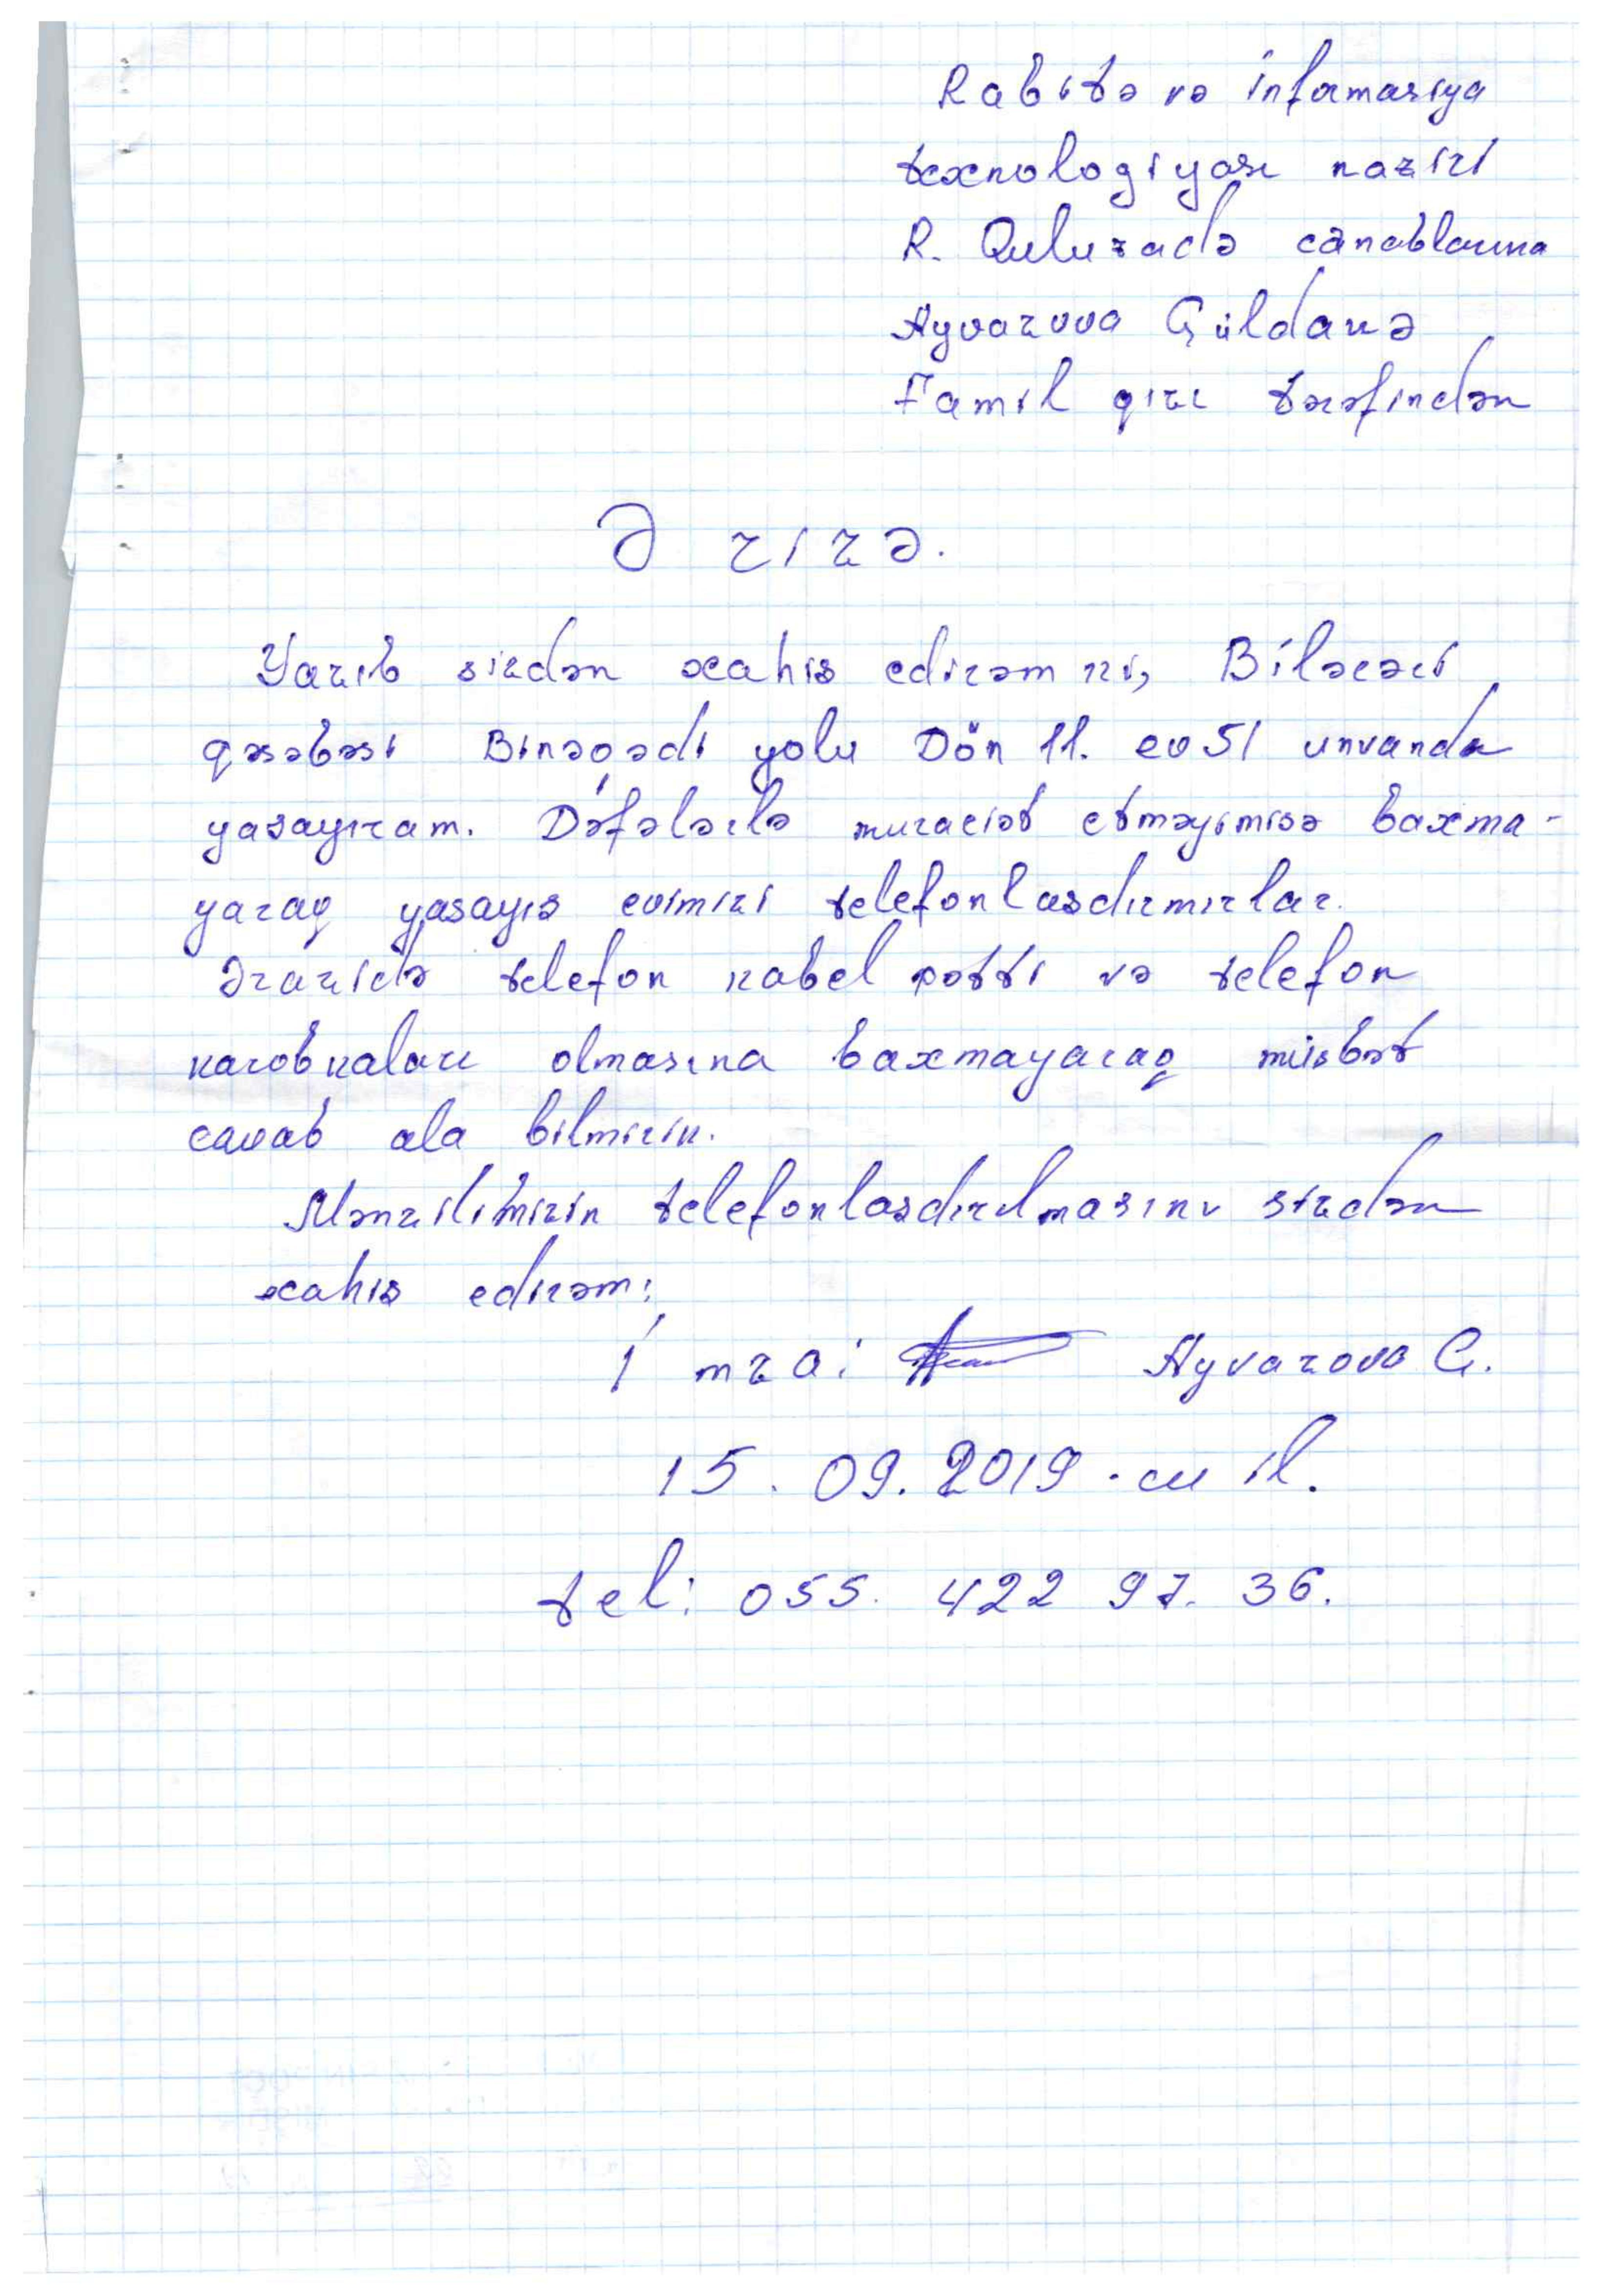 Rabitə və informasiya
texnologiyası naziri
R. Quluzadə canablarına
Ayvazova Güldanə
Famil qızı tərəfindən
Ərizə.
Yazıb sizdən xahis edirəm ki, Biləcəri
qəsəbəsi Binəqədi yolu Dön 11. ev 51 unvanda
yasayıram. Dəfələrlə muraciət etməyimisə baxma-
yaraq yasayıs evimizi telefonlasdırmırlar.
Ərazidə telefon kabel xətti və telefon
karobkaları olmasına baxmayaraq müsbət
cavab ala bilmirik.
Mənzilimizin telefonlasdırılmasını sizdən
xahis edirəm:
İmza: Ayvazova G.
15.09.2019-cu il.
tel: 055. 422 97. 36.